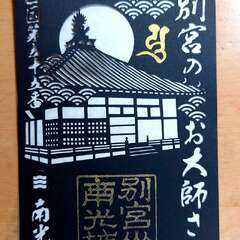 別宮のお大師さ
四国第五十五番
南光
別宮山
南光坊